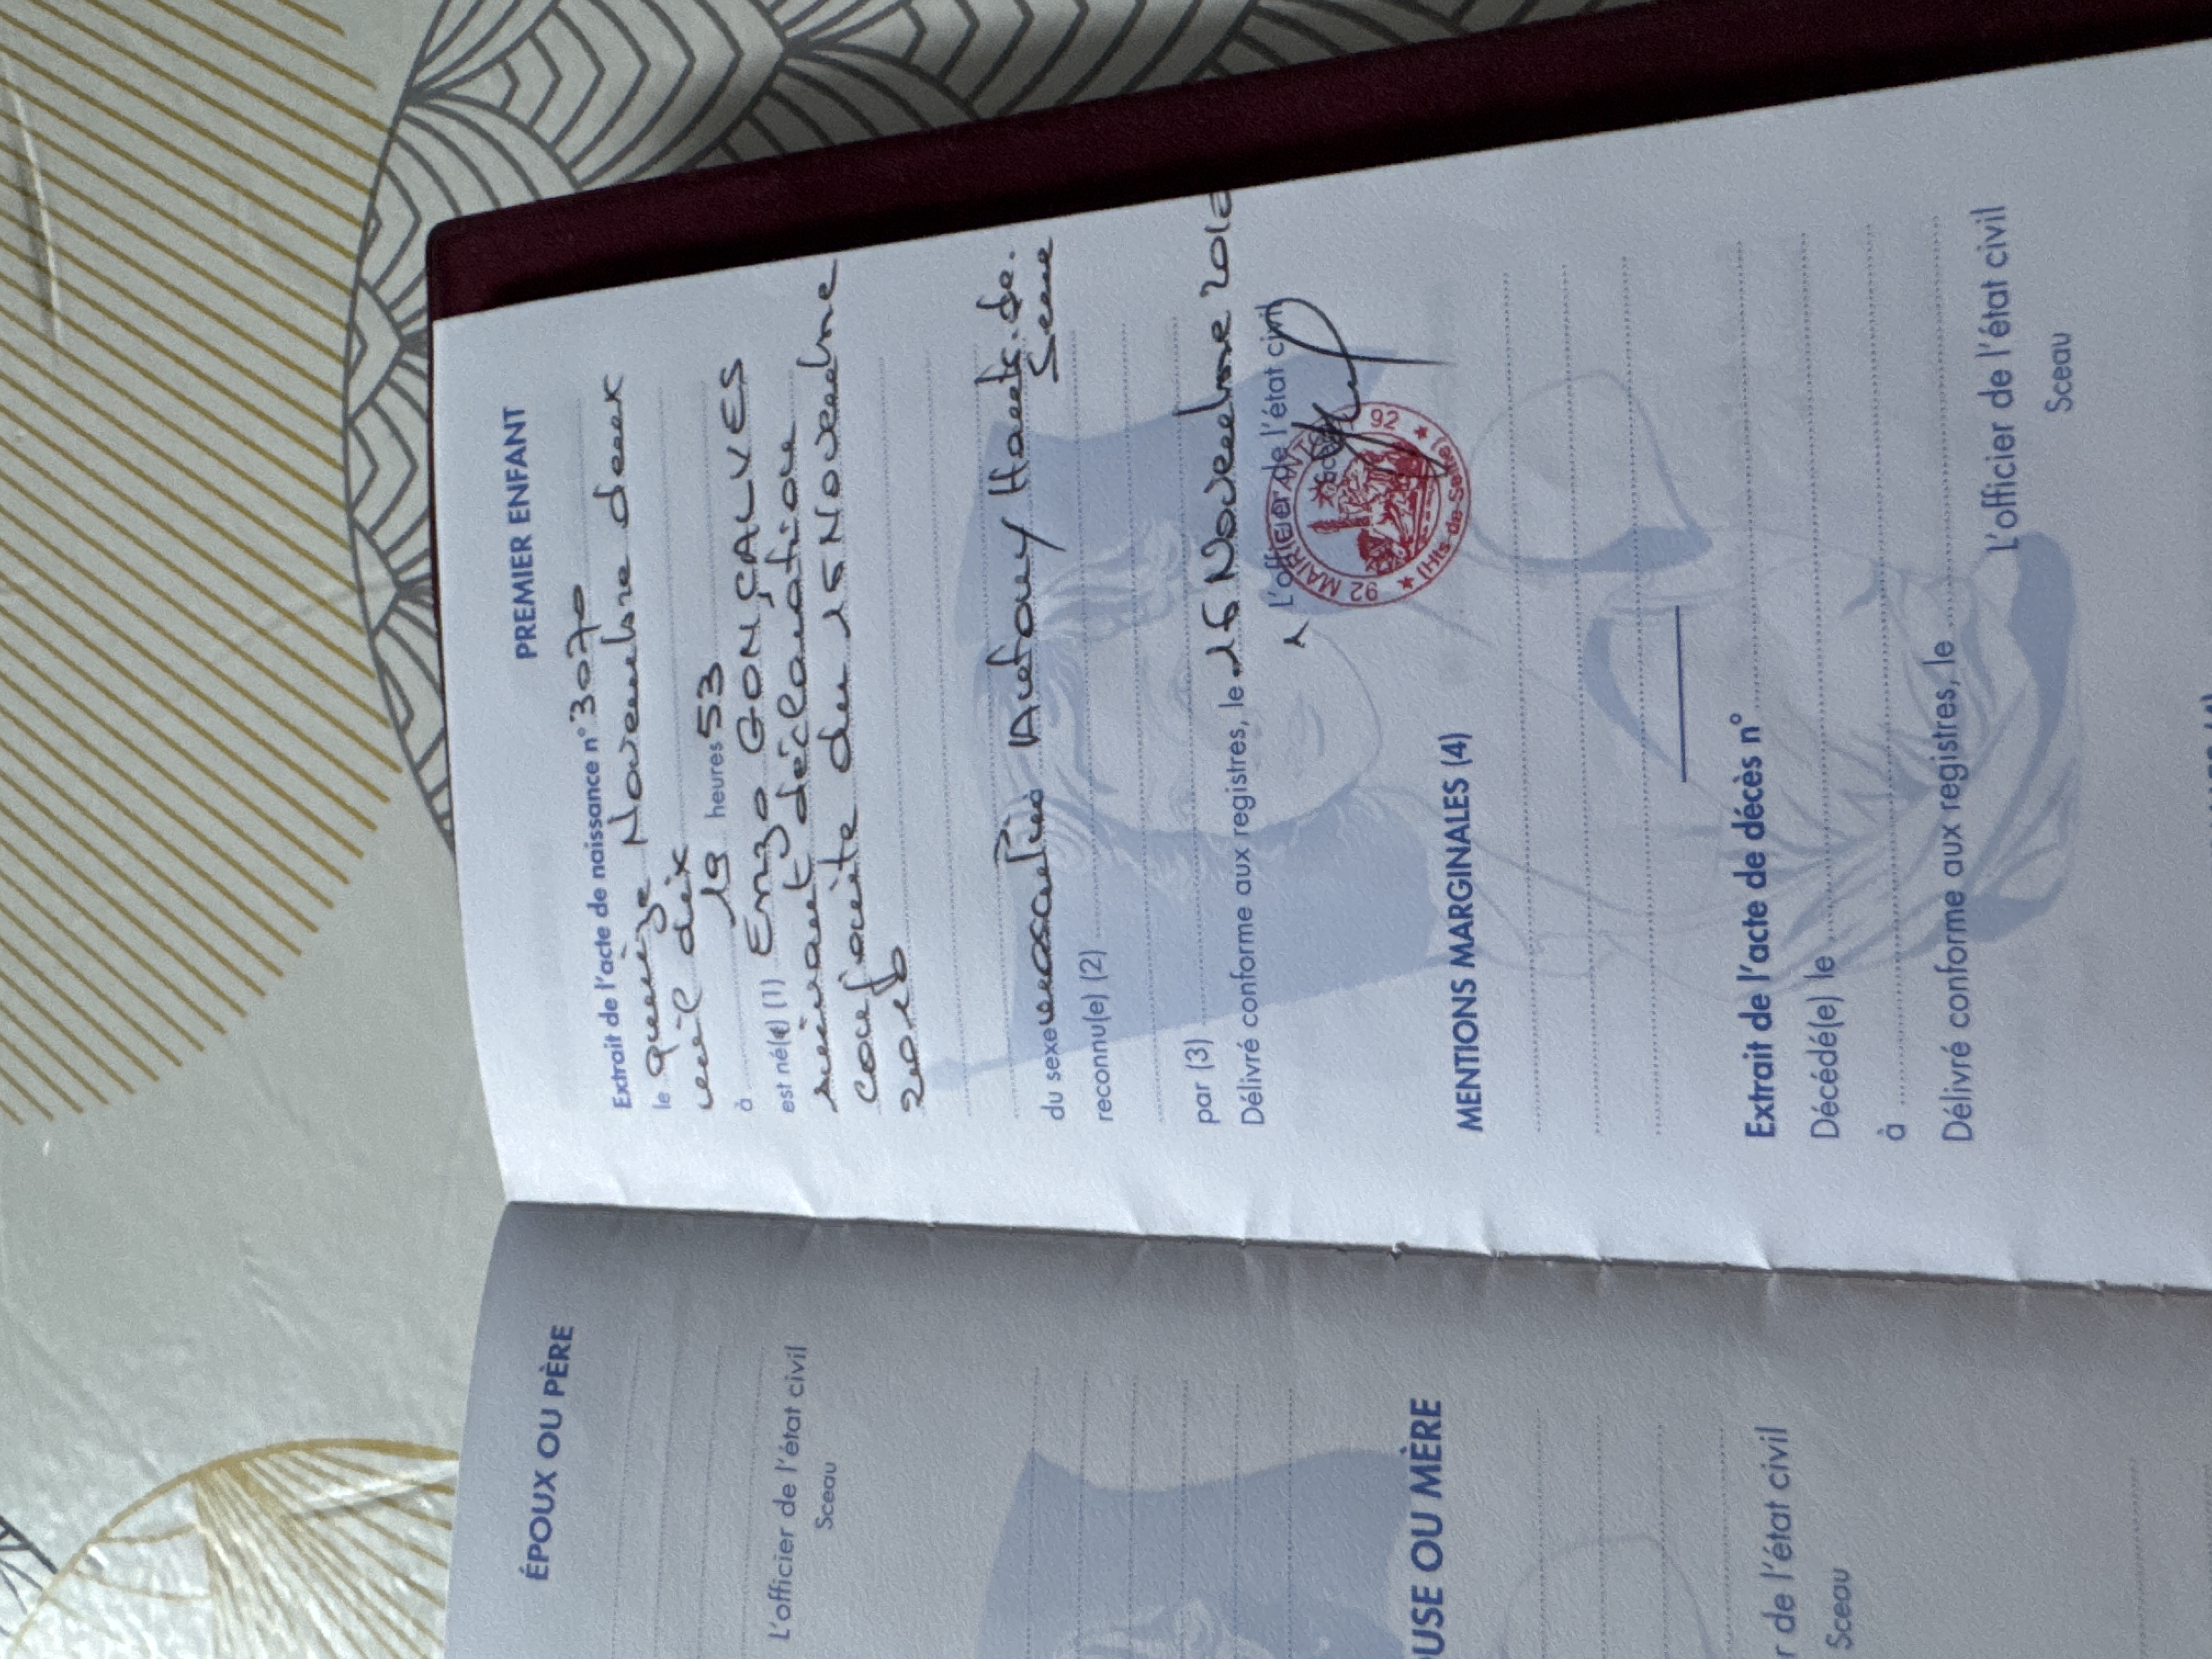 ÉPOUX OU PÈRE
L'officier de l'état civil
Sceau
USE OU MÈRE
r de l'état civil
Sceau
PREMIER ENFANT
Extrait de l'acte de naissance n° 3070
le quinze Novembre deux
mil dix
à 19 heures 53
est né(e) (1) Enzo GONÇALVES
suivant déclaration
conjointe du 15 Novembre
2010
du sexe masculin Antony Hauts. de.
Seine
reconnu(e) (2)
par (3)
Délivré conforme aux registres, le 16 Novembre 2010
L'officier de l'état civil
92 MAIRIE 92
(Hts-de-Seine)
MENTIONS MARGINALES (4)
Extrait de l'acte de décès n°
Décédé(e) le
à
Délivré conforme aux registres, le
L'officier de l'état civil
Sceau